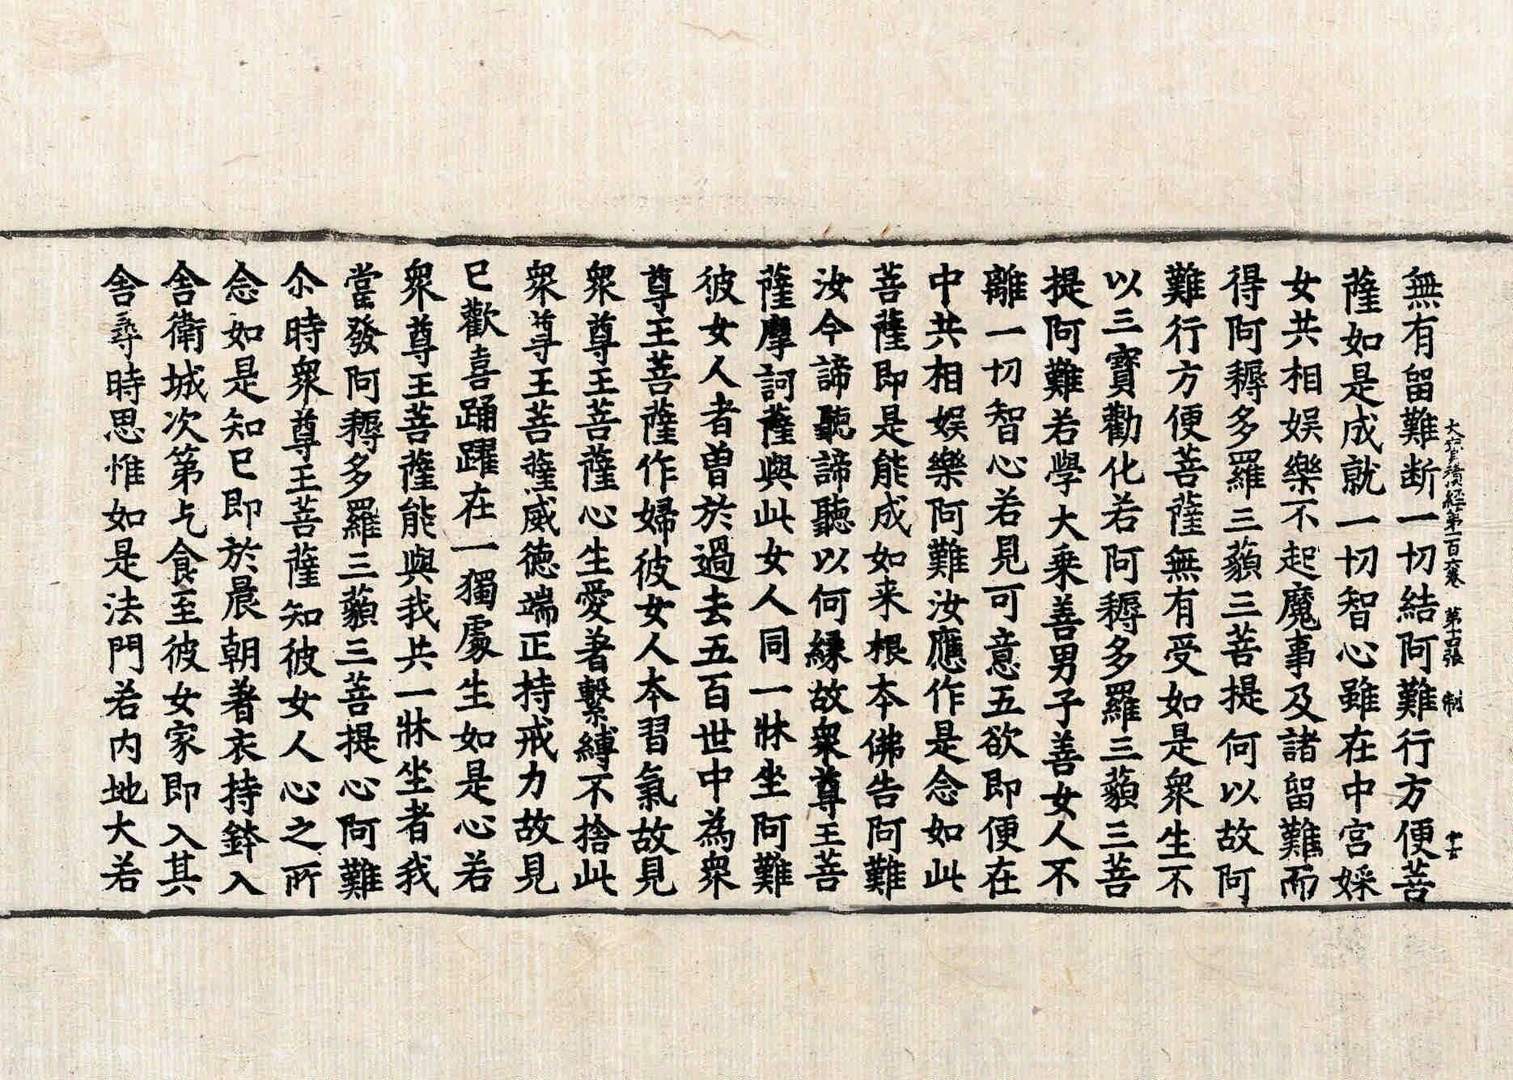 無有留難断一切結阿難行方便菩
大寶積經第一百六卷 第十五張 制
薩如是成就一切智心雖在中宮婇
女共相娛樂不起魔事及諸留難而
得阿耨多羅三藐三菩提何以故阿
難行方便菩薩無有受如是衆生不
以三寶勸化若阿耨多羅三藐三菩
提阿難若學大乗善男子善女人不
離一切智心若見可意五欲即便在
中共相娛樂阿難汝應作是念如此
菩薩即是能成如来根本佛告阿難
汝今諦聽諦聽以何縁故衆尊王菩
薩摩訶薩與此女人同一牀坐阿難
彼女人者曽於過去五百世中為衆
尊王菩薩作婦彼女人本習氣故見
衆尊王菩薩心生愛著繫縛不捨此
衆尊王菩薩威德端正持戒力故見
已歡喜踊躍在一獨處生如是心若
衆尊王菩薩能與我共一牀坐者我
當發阿耨多羅三藐三菩提心阿難
尒時衆尊王菩薩知彼女人心之所
念如是知已即於晨朝著衣持鉢入
舎衛城次第乞食至彼女家即入其
舎尋時思惟如是法門若内地大若